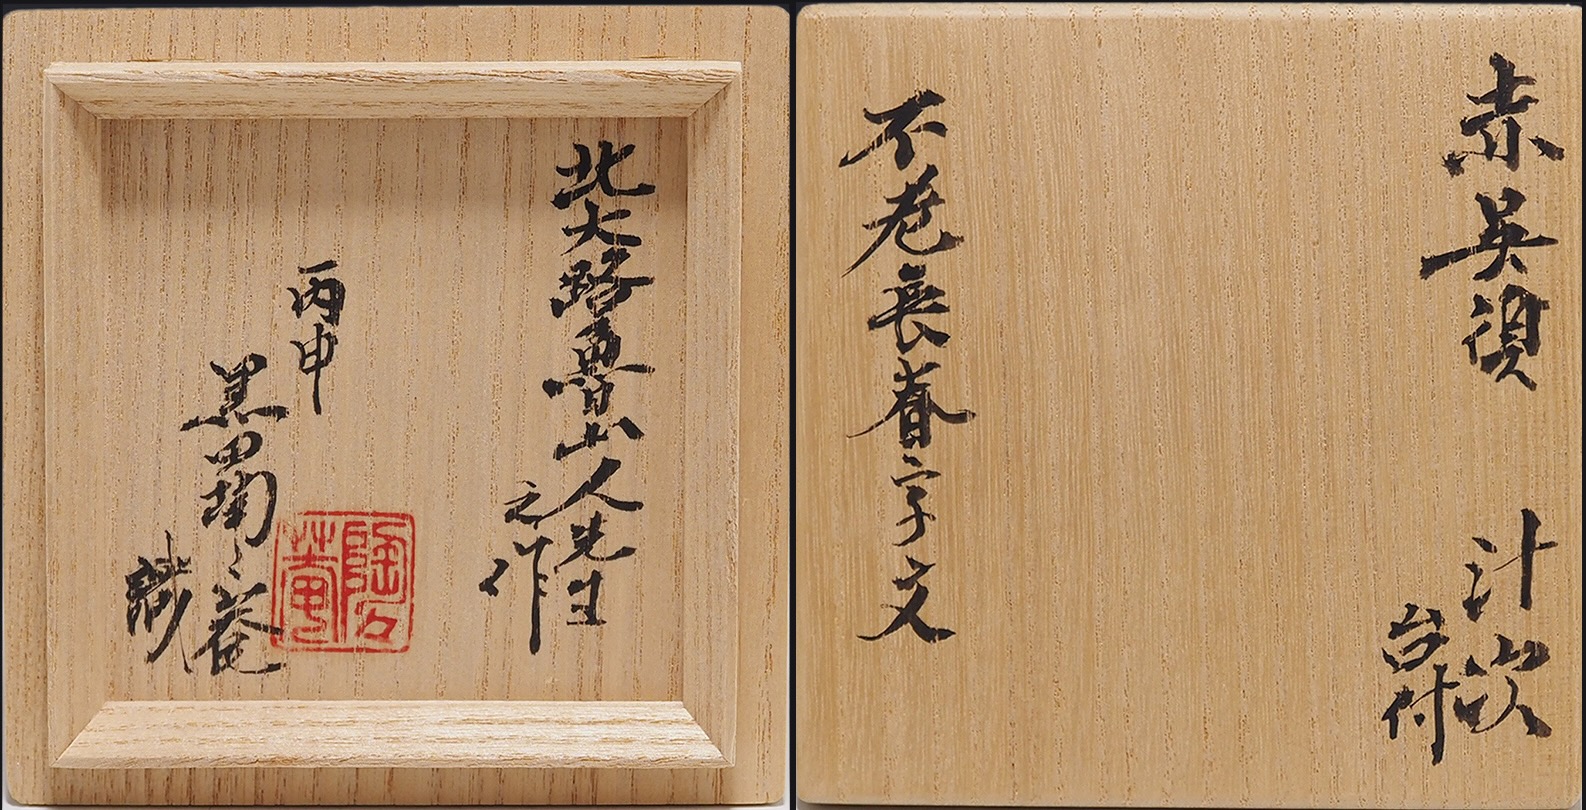 赤呉須 汁次
台付
不老長春字文
北大路魯山人先生
之作
丙申
黒田陶々菴
識
陶々菴